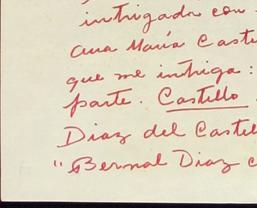 intrigada con
Ana María Caste
que me intriga:
parte. Castillo
Diaz del Castel
"Bernal Diaz c